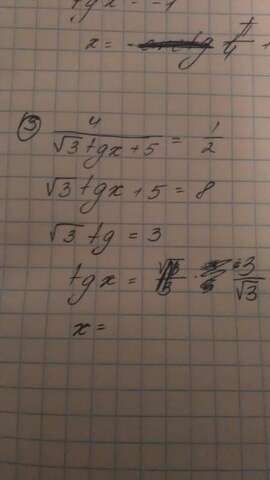 tg x = -1
x = - π/4 +
③ 4/(√3 tg x + 5) = 1/2
√3 tg x + 5 = 8
√3 tg = 3
tg x = 3/√3
x =